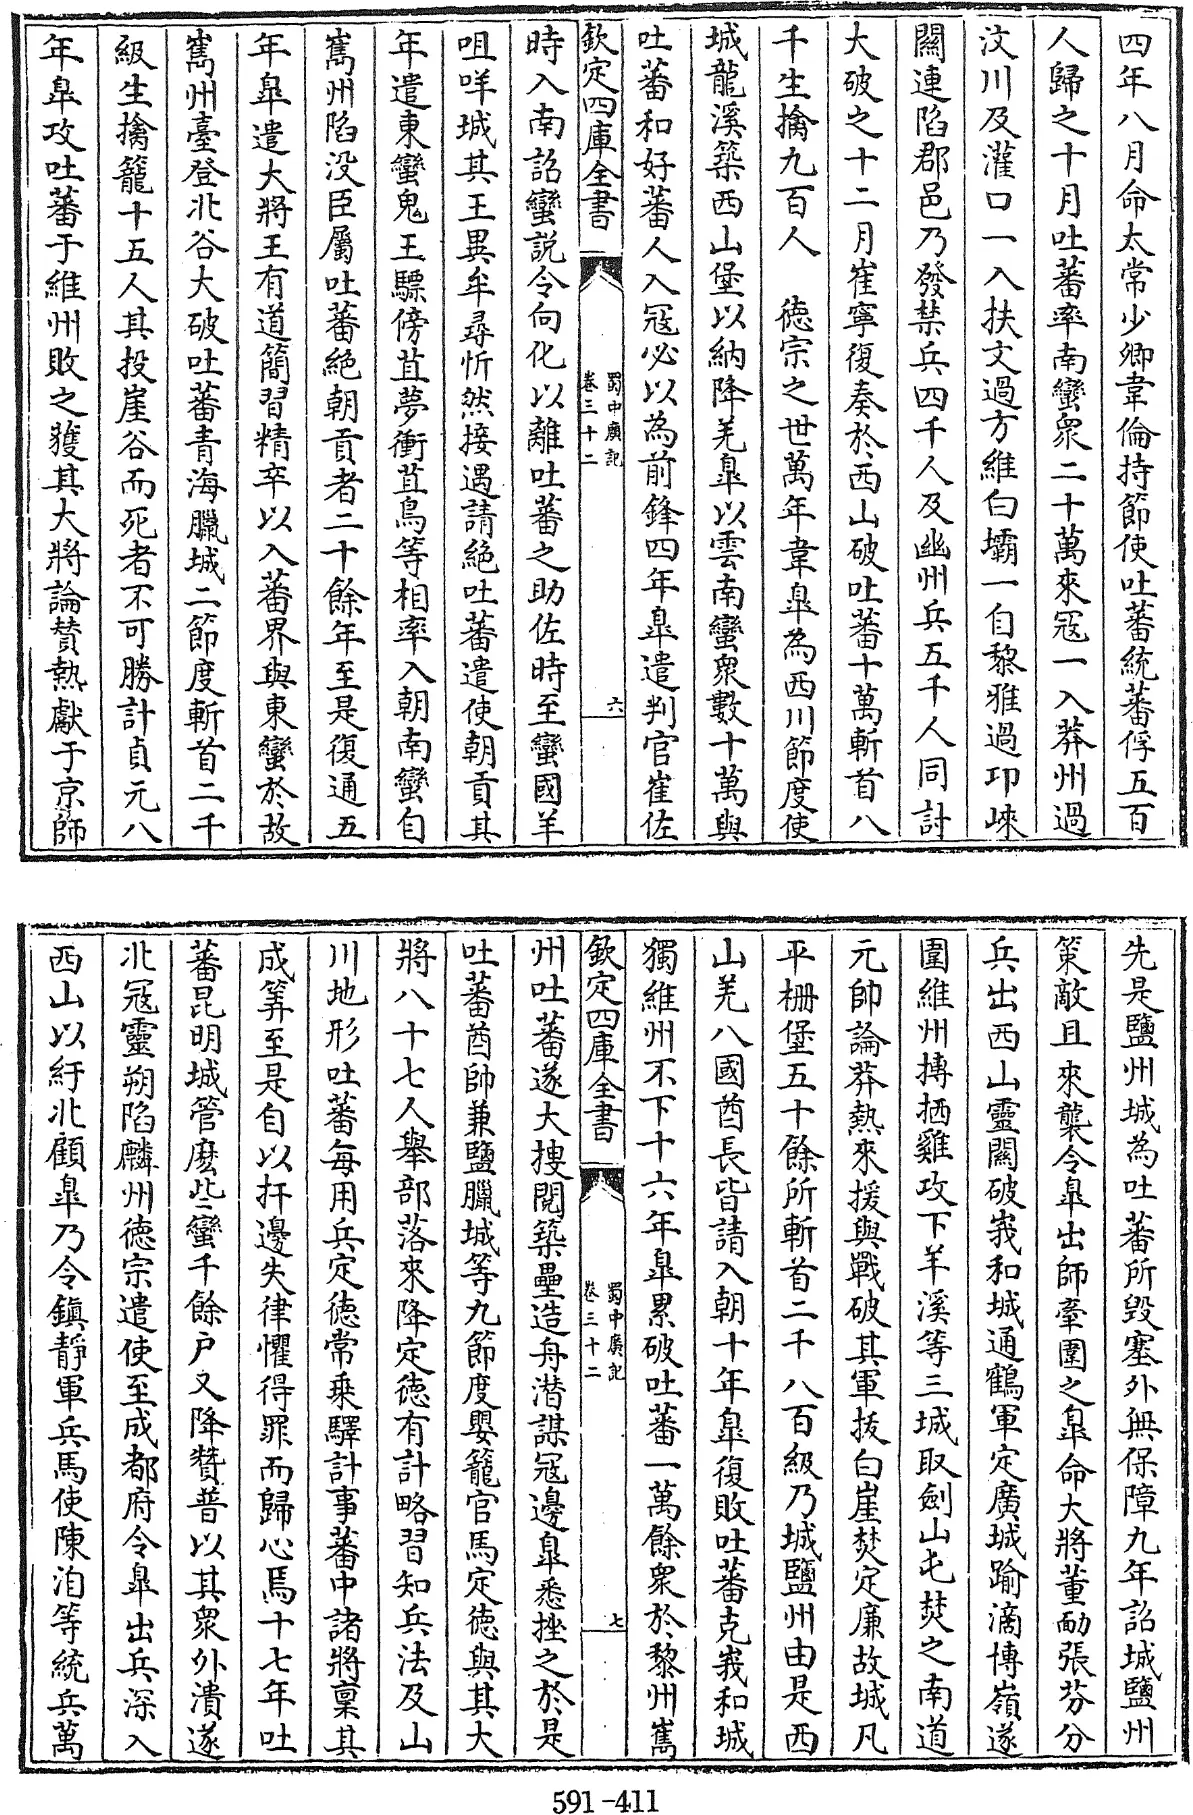 四年八月命太常少卿韋倫持節使吐蕃統蕃俘五百
人歸之十月吐蕃率南蠻衆二十萬來冦一入茶州過
汶川及灌口一入扶文過方維白壩一自黎雅過邛崍
關連陷郡邑乃發禁兵四千人及幽州兵五千人同討
大破之十二月崔寧復奏於西山破吐蕃十萬斬首八
千生擒九百人　徳宗之世萬年韋臯為西川節度使
城龍溪築西山堡以納降羌臯以雲南蠻衆數十萬與
吐蕃和好蕃人入冦必以為前鋒四年臯遣判官崔佐
欽定四庫全書
蜀中廣記
卷三十二
六
時入南詔蠻説令向化以離吐蕃之助佐時至蠻國羊
咀咩城其王異牟尋忻然接遇請絶吐蕃遣使朝貢其
年遣東蠻鬼王驃傍苴夢衝苴烏等相率入朝南蠻自
嶲州陷没臣屬吐蕃絶朝貢者二十餘年至是復通五
年臯遣大將王有道簡習精卒以入蕃界與東蠻於故
嶲州臺登北谷大破吐蕃青海臘城二節度斬首二千
級生擒籠十五人其投崖谷而死者不可勝計貞元八
年臯攻吐蕃于維州敗之獲其大將論賛熱獻于京師
先是鹽州城為吐蕃所毀塞外無保障九年詔城鹽州
策敵且來襲令臯出師牽圍之臯命大將董勔張芬分
兵出西山靈關破峩和城通鶴軍定廣城踰滴博嶺遂
圍維州搏栖雞攻下羊溪等三城取劍山屯焚之南道
元帥論莽熱來援與戰破其軍拔白崖焚定廉故城凡
平栅堡五十餘所斬首二千八百級乃城鹽州由是西
山羌八國酋長皆請入朝十年臯復敗吐蕃克峩和城
獨維州不下十六年臯累破吐蕃一萬餘衆於黎州嶲
欽定四庫全書
蜀中廣記
卷三十二
七
州吐蕃遂大搜閲築壘造舟潛謀冦邊臯悉挫之於是
吐蕃酋帥兼鹽臘城等九節度嬰籠官馬定徳與其大
將八十七人舉部落來降定徳有計略習知兵法及山
川地形吐蕃每用兵定徳常乗驛計事蕃中諸將稟其
成筭至是自以扞邊失律懼得罪而歸心焉十七年吐
蕃昆明城管麽些蠻千餘户又降贊普以其衆外潰遂
北冦靈朔陷麟州徳宗遣使至成都府令臯出兵深入
西山以紓北顧臯乃令鎮靜軍兵馬使陳洎等統兵萬
591-411